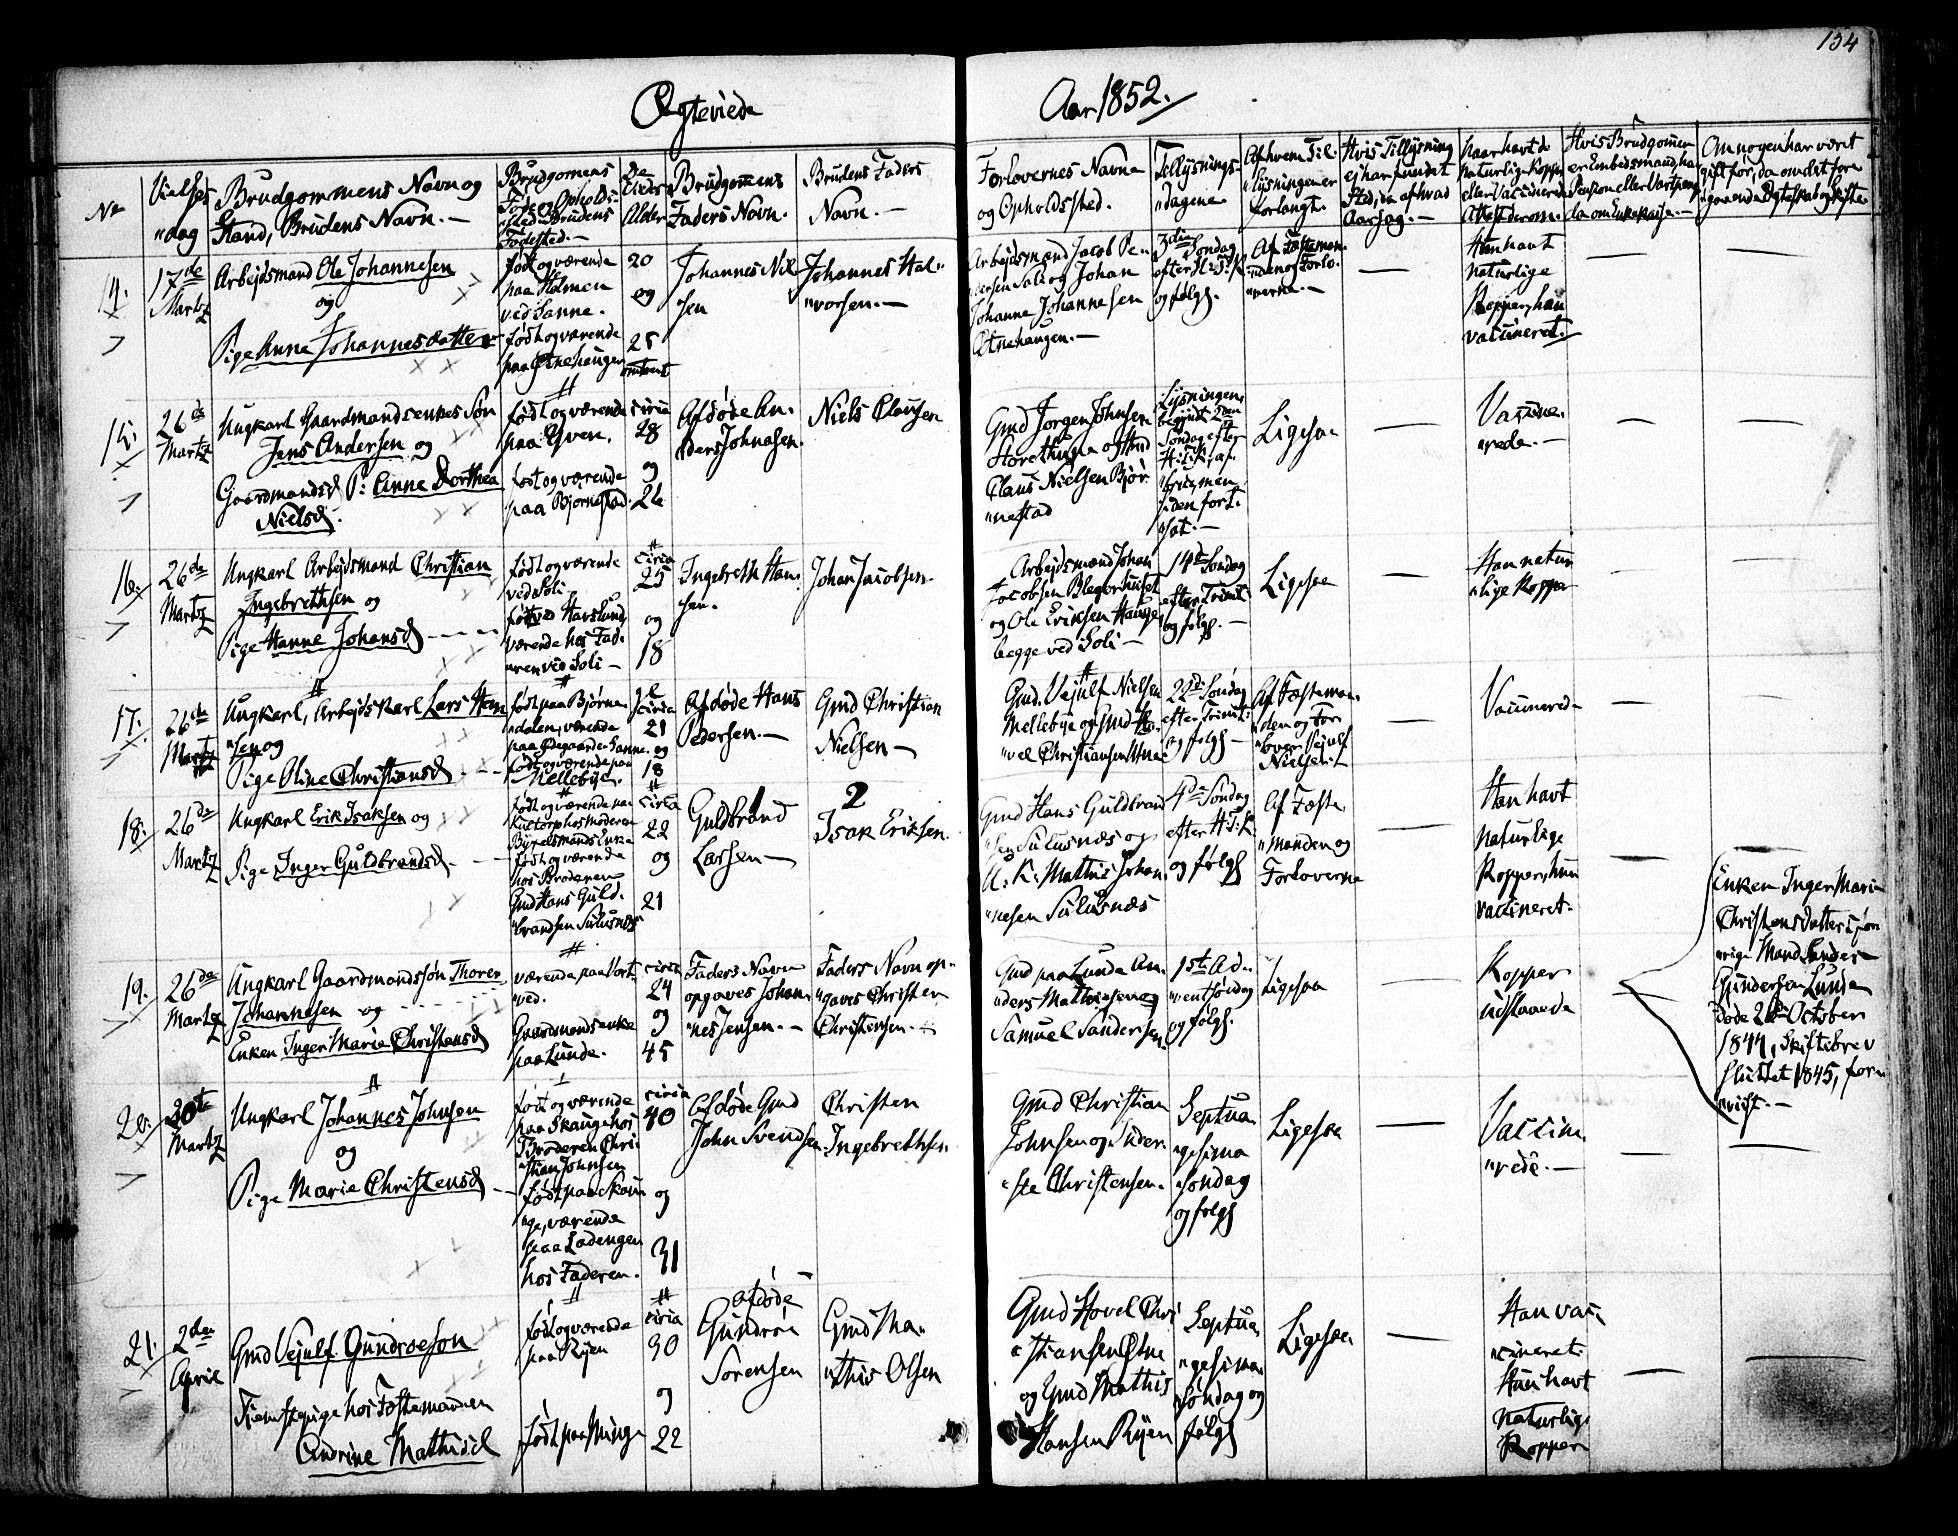 134
Ægteviede
Aar 1852.
No
Vielses
"dag
Brudgommens Navn og
Stand, Brudens Navn. —
Brudgomens
Føde og Opholds-
sted. Brudens
Fødested. —
De
Alder
Brudgomens
Faders Navn.
Brudens Faders
Navn. —
Forlovernes Navne
og Opholdssted.
Tillysnings-
"dagene
Af hvem Til-
"lysningen er
forlangt.
Hvis Tillysning
ej har fundet
Sted, da af hvad
Aarsag. —
Naar havt de
naturlige Kopper
eller Vaccinerede
Attest derom.
Hvis Brudgommen
er Embedsmand, har
Pension eller
da om Enkekasse. —
Om nogen har været
gift før, da omdet fore
"gaaende Ægteskab og Skifte
14.
17de
Martz
Arbejdsmand Ole Johannesen
og
Pige Anne Johannesdatter
født og værende
paa Holmen
ved Sanne.
født og værende
paa Ætnehaugen
20
og
25
omtrent
Johannes Niel
"sen
Johannes Hal-
"vorsen. —
Arbejdsmand Jacob Pe-
"dersen Soli og Johan
Johanne Johannesen
Ætnehaugen. —
3die Søndag
efter H: 3: K:
og følgd.
Af Fæsteman-
"den og Forlo-
"verne. —
—
Han havt
naturlige
Kopper, hun
vaccineret.
—
—
15.
26de
Martz
Ungkarl Gaardmandsenkes Søn
Jens Andersen og
Gaardmandsd. P: Anne Dorthea
Nielsd.
født og værende
paa Yven.
født og værende
paa Bjørnestad.
circa
28
og
26
Afdøde An-
"ders Johnsen.
Niels Clausen
Gmd Jørgen Johnsen
Storethune og Gmd
Claus Nielsen Bjør-
"nestad
Lysningen
begyndt 2den
Søndag efter
H: 3: K:, af-
"brudt, men
siden fort-
"sat. —
Ligesaa
—
Vaccine-
"rede. —
—
—
16.
26de
Martz
Ungkarl Arbejdsmand Christian
Ingebrethsen og
Pige Hanne Johansd
født og værende
ved Soli.
født ved Hafslund,
værende hos Fad-
"eren ved Soli —
circa
25
og
18
Ingebreth Han-
"sen.
Johan Jacobsen
Arbejdsmand Johan
Jacobsen Blegerhuset
og Ole Eriksen Hauge
begge ved Soli —
14de Søndag
efter Trinit:
og følgd. —
Ligesaa
—
Han natur
"lige Kopper
—
—
17.
26de
Martz
Ungkarl, Arbejdskarl Lars Han
"sen og
Pige Oline Christiansd
født paa Bjørne
"dalen, værende
paa Ødegaarden Sanne.
født og værende paa
Mellebÿe.
circa
21
og
18
Afdøde Hans
Pedersen. —
Gmd Christian
Nielsen —
Gmd. Vejulf Nielsen
Mellebÿe og Gmd Ho-
"vel Christiansen
22de Søndag
efter Trinit:
og følgd —
Af Fæsteman-
"den og For-
"lover Vejulf
Nielsen.
—
Vaccinered
—
18.
26de
Martz
Ungkarl Erik Isaksen og
Pige Inger Guldbrandsd.
født og værende paa
hos Moderen
født og værende
hos Broderen
Gmd Hans Guld-
"brandsen Sulusnæs
circa
22
og
21
1
Guldbrand
Larsen —
2
Isak Eriksen.
Gmd Hans Guldbrand
"sen Sulusnæs og
U: K: Mathis Johan-
"nesen Sulusnæs
4de Søndag
efter H: 3: K:
og følgd
Af Fæste
"manden og
Forloverne
—
Han havt
naturlige
Kopper, hun
vaccineret.
—
—
19.
26de
Martz
Ungkarl Gaardmandssøn Thorer
Johannesen og
Enken Inger Marie Christensd
værende paa Tort-
"ved.
Gaardmandsenke
paa Lunde.
circa
24
og
45
Faders Navn
opgaves Johan-
"nes Jensen. —
Faders Navn op-
"gaves Christen
Christensen. —
Gmd paa Lunde An-
"ders Mathisen og
Samuel Sandersen.
1ste Ad-
"ventsøndag
og følgd.
Ligesaa
—
Kopper
udstaaede
—
Enken Inger Marie
Christensdatters for-
"rige Mand Sander
Gundersen Lunde
døde 26de October
1844, Skiftebrev
sluttet 1845, fore-
"vist. —
20.
20de
Martz
Ungkarl Johannes Johnsen
og
Pige Marie Christensd
født og værende
paa Skauge hos
Broderen Chri-
"stian Johnsen
født paa Skau-
"ge, værende
paa Ladengen
hos Faderen.
circa
40
og
31
Afdøde Gmd
John Svendsen
Christen
Ingebrethsen.
Gmd Christian
Johnsen og Inder-
"ste Christensen.
Septua-
"gesima
Søndag
og følgd
Ligesaa
—
Vaccine-
"rede. —
—
—
21.
2den
April
Gmd Vejulf Gundroesøn
Tjenstepige hos Fæstemanden
Andrine Mathisd
født og værende
paa Ryen
født paa Minge
circa
30
og
22
afdøde
Gundroe
Sørensen
Gmd Ma-
"this Olsen
Gmd Hovel Chri-
"stiansen Ætne
og Gmd Mathis
Hansen Ryen
Septua-
"gesima
Søndag og
følgd
Ligesaa
—
Han vac-
"cineret
Hun havt
naturlige
Kopper
—
—